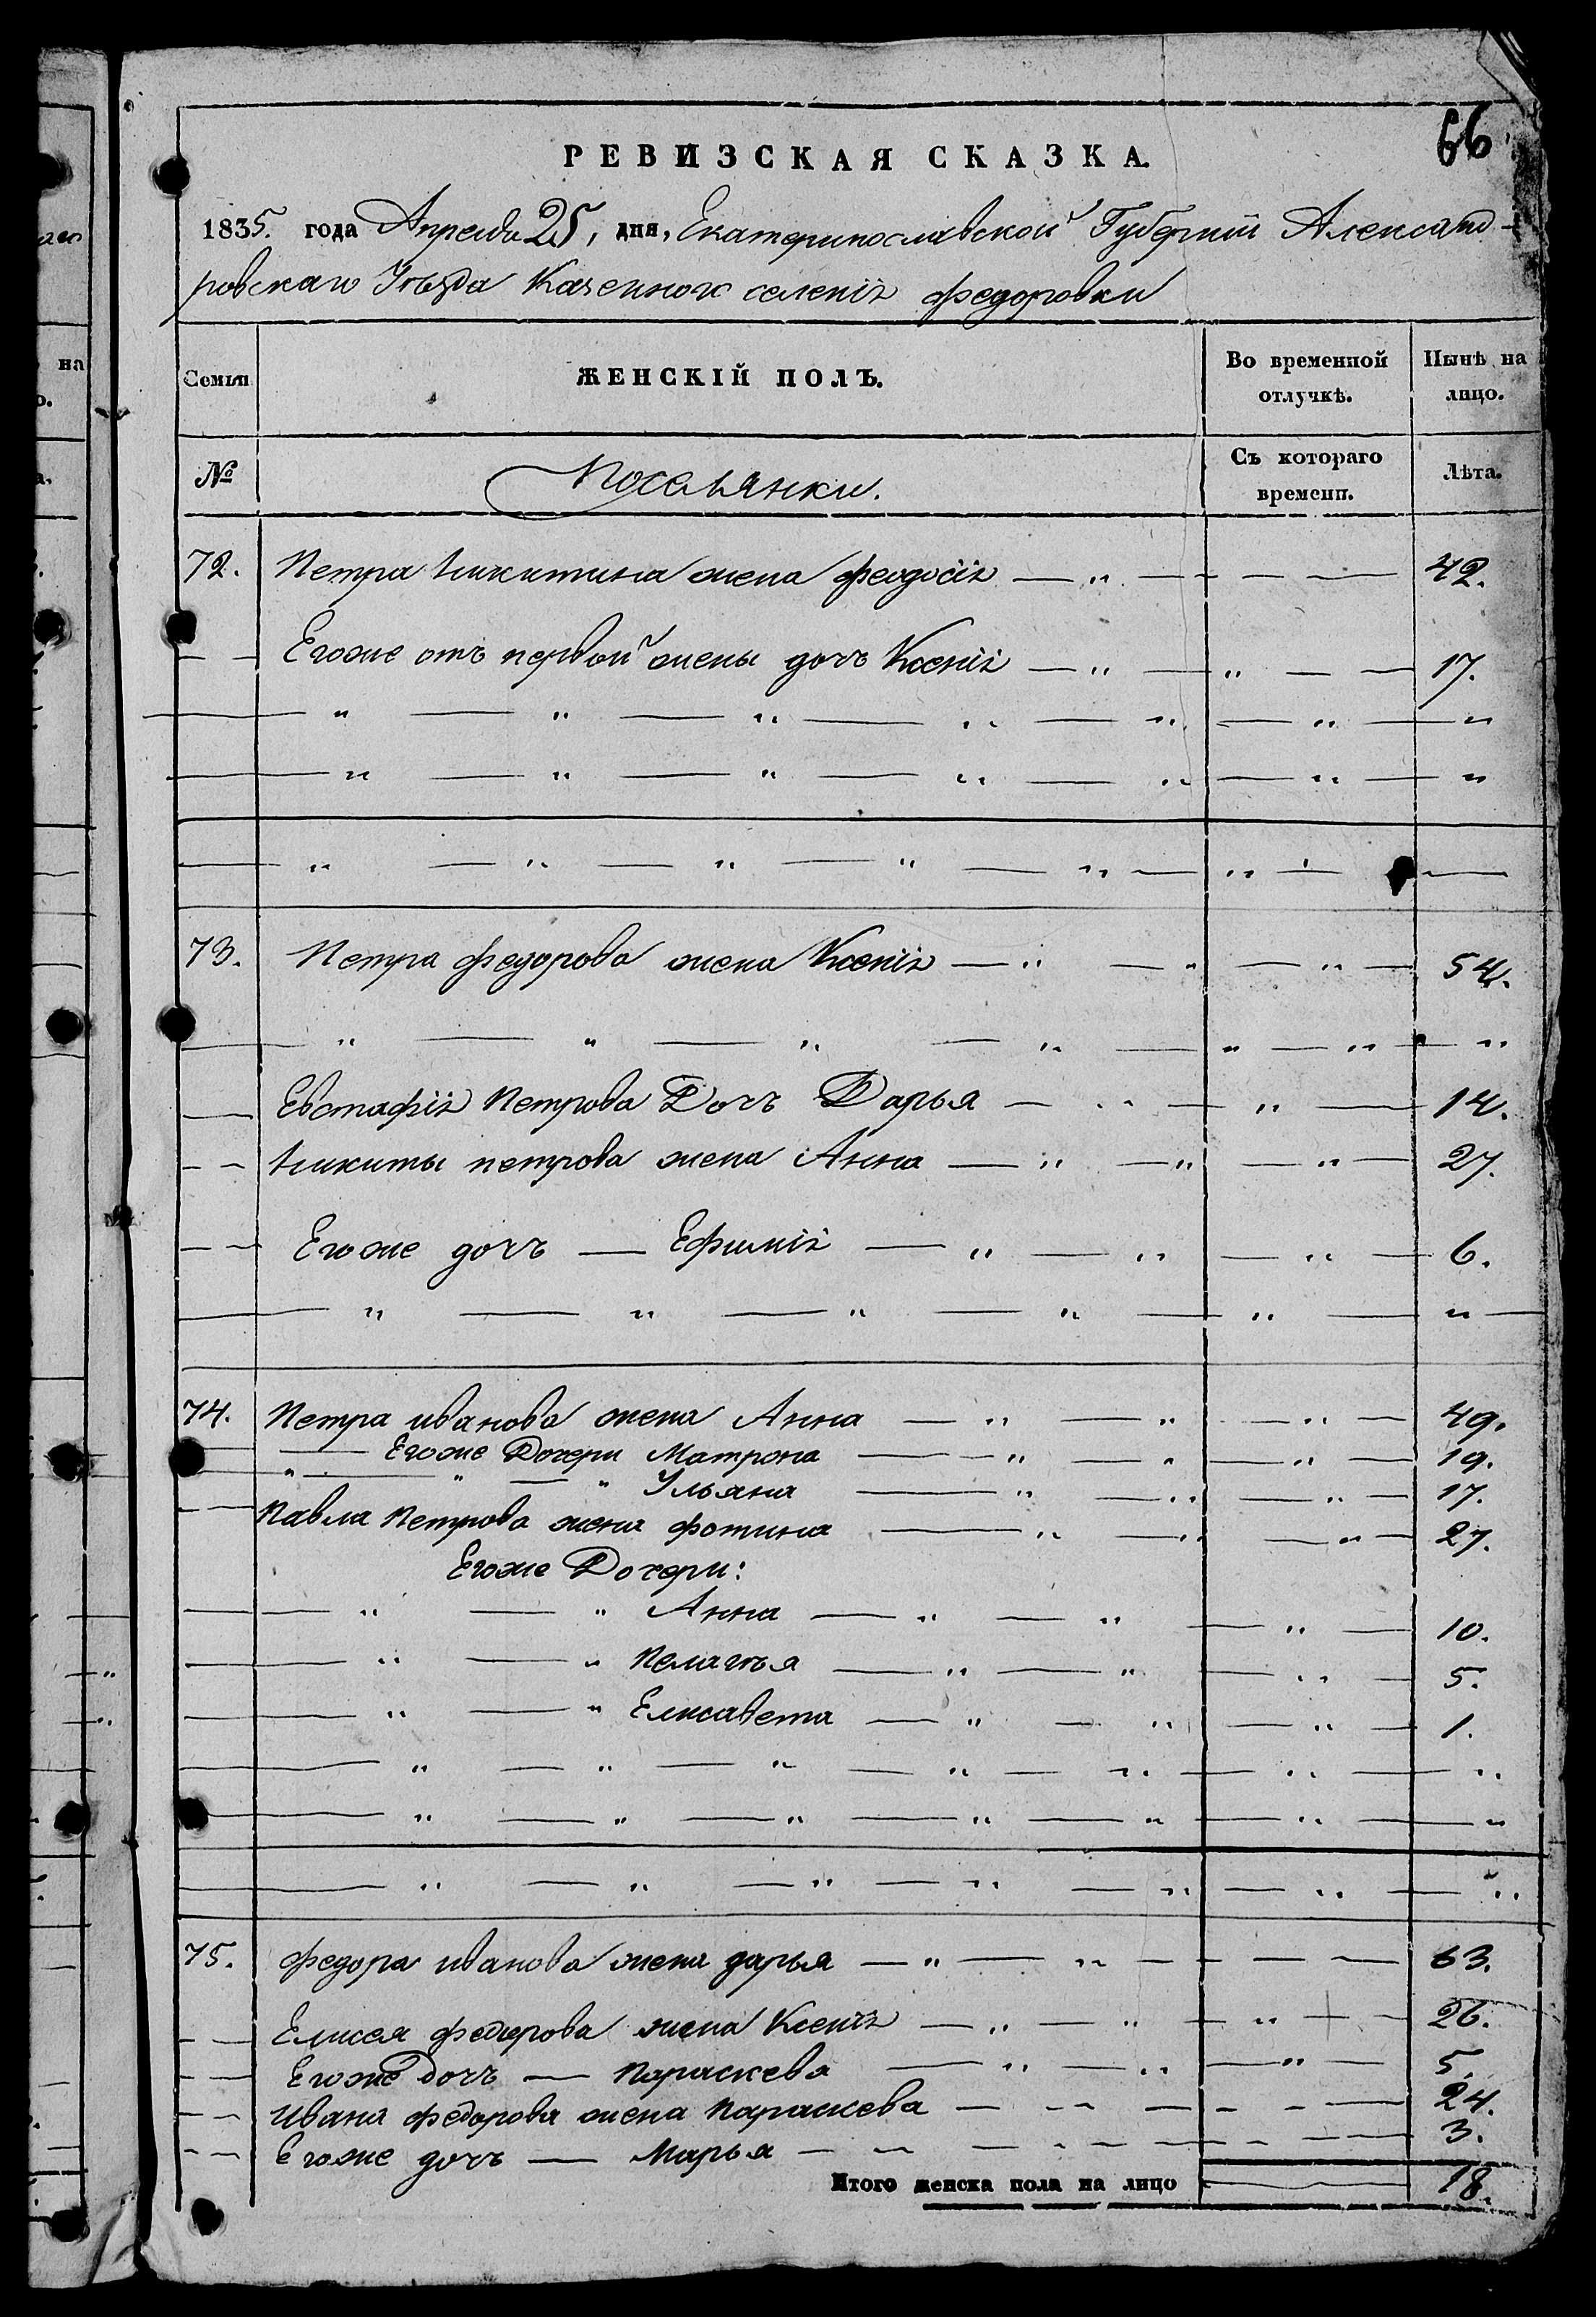 66
РЕВИЗСКАЯ СКАЗКА.
1835. года Апреля 25, дня, Екатеринославской Губерніи Александ-
ровскаго Уѣзда Казеннаго селенія федоровки
Семьи ЖЕНСКІЙ ПОЛЪ. Во временной отлучкѣ. Нынѣ на лицо.
№ Поселянки. Съ котораго времени. Лѣта.
72. Петра Никитина жена феодосія — „ — — — — 42.
— — Егоже отъ первой жены дочь Ксенія — „ — „ — — 17.
— „ — „ — „ — „ — „ — „ — „
— „ — „ — „ — „ — „ — „ — „
— „ — „ — „ — „ — „ — „ — —
73. Петра федорова жена Ксенія — „ — „ — „ — 54.
— „ — „ — „ — „ — „ — „ — „
— Евстафія Петрова Дочь Дарья — „ — „ — 14.
— — Никиты петрова жена Анна — „ — „ — „ — 27.
— — Егоже дочь — Ефимія — „ — „ — „ — 6.
— „ — „ — „ — „ — „ — „ —
74. Петра иванова жена Анна — „ — „ — „ — 49.
— Егоже Дочери Матрона — „ — „ — „ — 19.
„ — „ — „ Ульяна — „ — „ — „ — 17.
— — Павла Петрова жена фотина — „ — „ — „ — 27.
Егоже Дочери:
— — „ — „ Анна — „ — „ — „ — 10.
— — „ — „ Пелагея — „ — „ — „ — 5.
— — „ — „ Елисавета — „ — „ — „ — 1.
— — „ — „ — „ — „ — „ — „ — „
— — „ — „ — „ — „ — „ — „ — „
— — „ — „ — „ — „ — „ — „ — „
75. федора иванова жена дарья — „ — „ — — — — 63.
— — Елисея федорова жена Ксенія — „ — „ — „ — 26.
— — Егоже Дочь — Параскева — „ — „ — „ — 5.
— — Ивана федорова жена Параскева — — — — — — 24.
— — Егоже дочь — Марья — — — — — — 3.
Итого женска пола на лицо — 18.